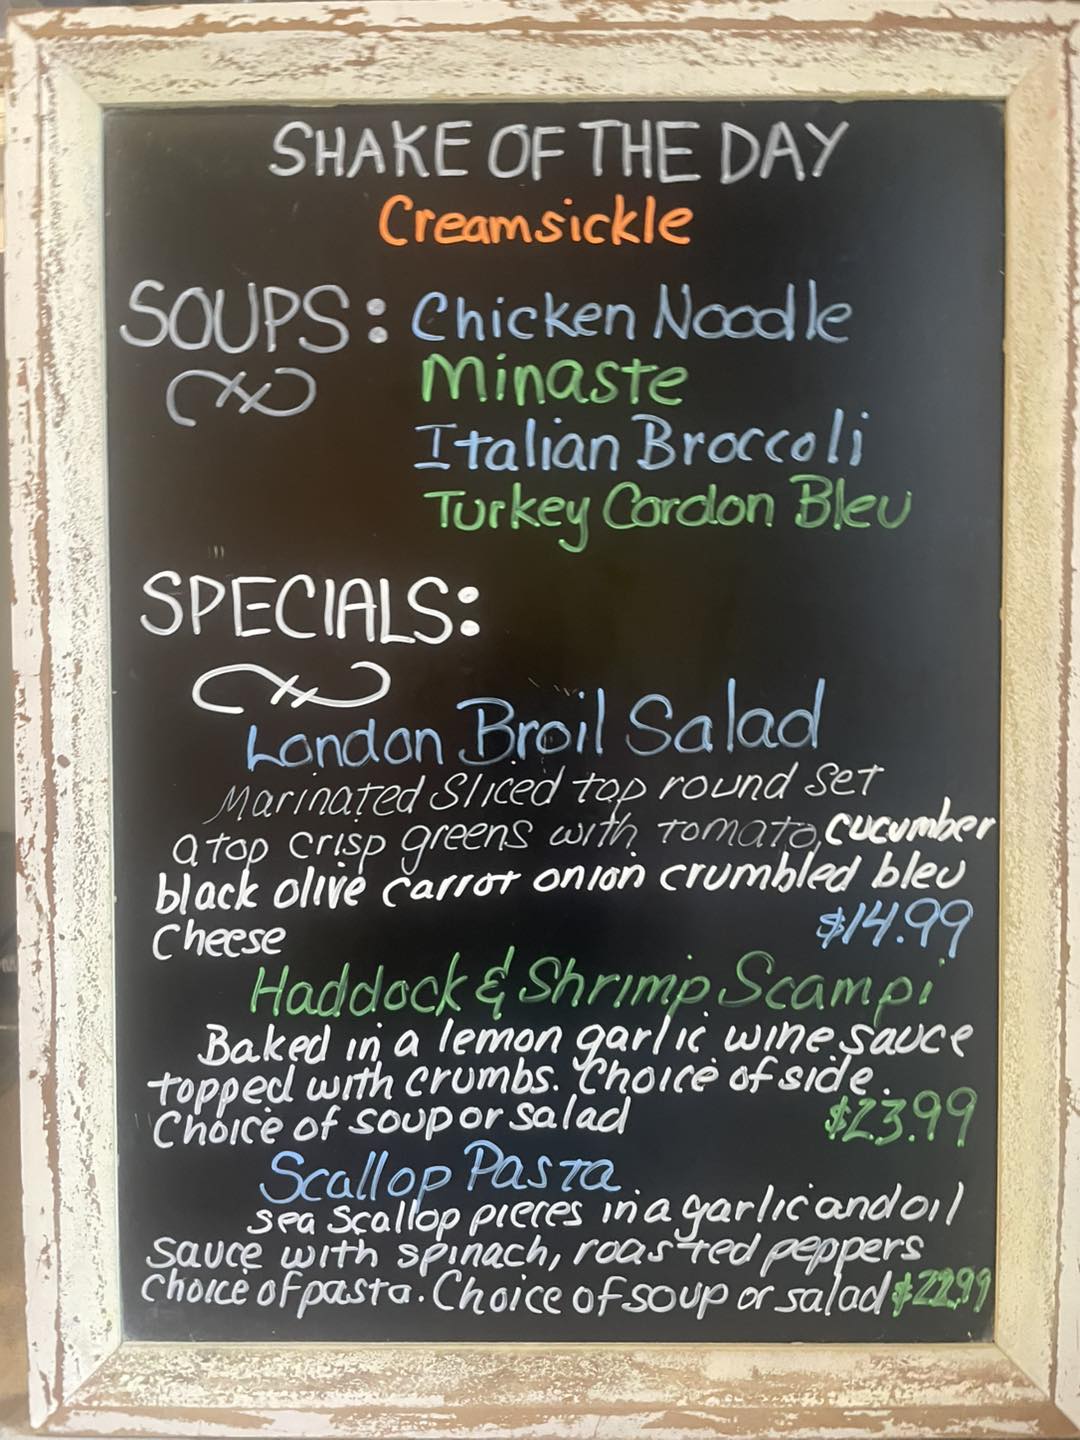 SHAKE OF THE DAY
Creamsickle
SOUPS: Chicken Noodle
Minaste
Italian Broccoli
Turkey Cordon Bleu
SPECIALS:
London Broil Salad
Marinated Sliced top round set
atop crisp greens with tomato, cucumber
black olive carrot onion crumbled bleu
Cheese $14.99
Haddock & Shrimp Scampi
Baked in a lemon garlic wine sauce
topped with crumbs. Choice of side.
Choice of soup or salad $23.99
Scallop Pasta
sea scallop pieces in a garlic and oil
sauce with spinach, roasted peppers
choice of pasta. Choice of soup or salad $22.99